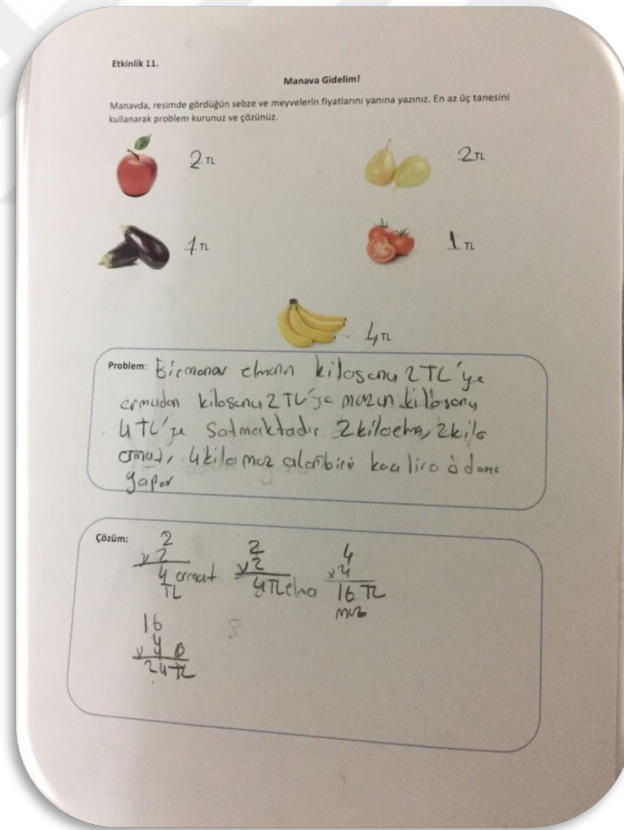 Etkinlik 11.
Manava Gidelim!
Manavda, resimde gördüğün sebze ve meyvelerin fiyatlarını yanına yazınız. En az üç tanesini
kullanarak problem kurunuz ve çözünüz.
2 TL 2 TL
1 TL 1 TL
4 TL
Problem: Bir manav elmanın kilosunu 2 TL'ye
armudan kilosunu 2 TL'ye muzun kilosunu
4 TL'ye satmaktadır. 2 kilo elma, 2 kilo
armut, 4 kilo muz alan biri kaç lira ödeme
yapar
Çözüm: 2 2 4
x 2 x 2 x 4
4 armut 4 TL elma 16 TL
TL muz
16
24 TL